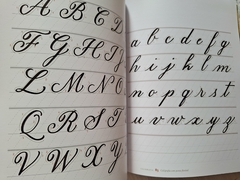 A B C D
F G H I J
L M N O
Q R S T
V W X Y
a b c d e f g
h i j k l m
n o p q r s t
u v w x y z